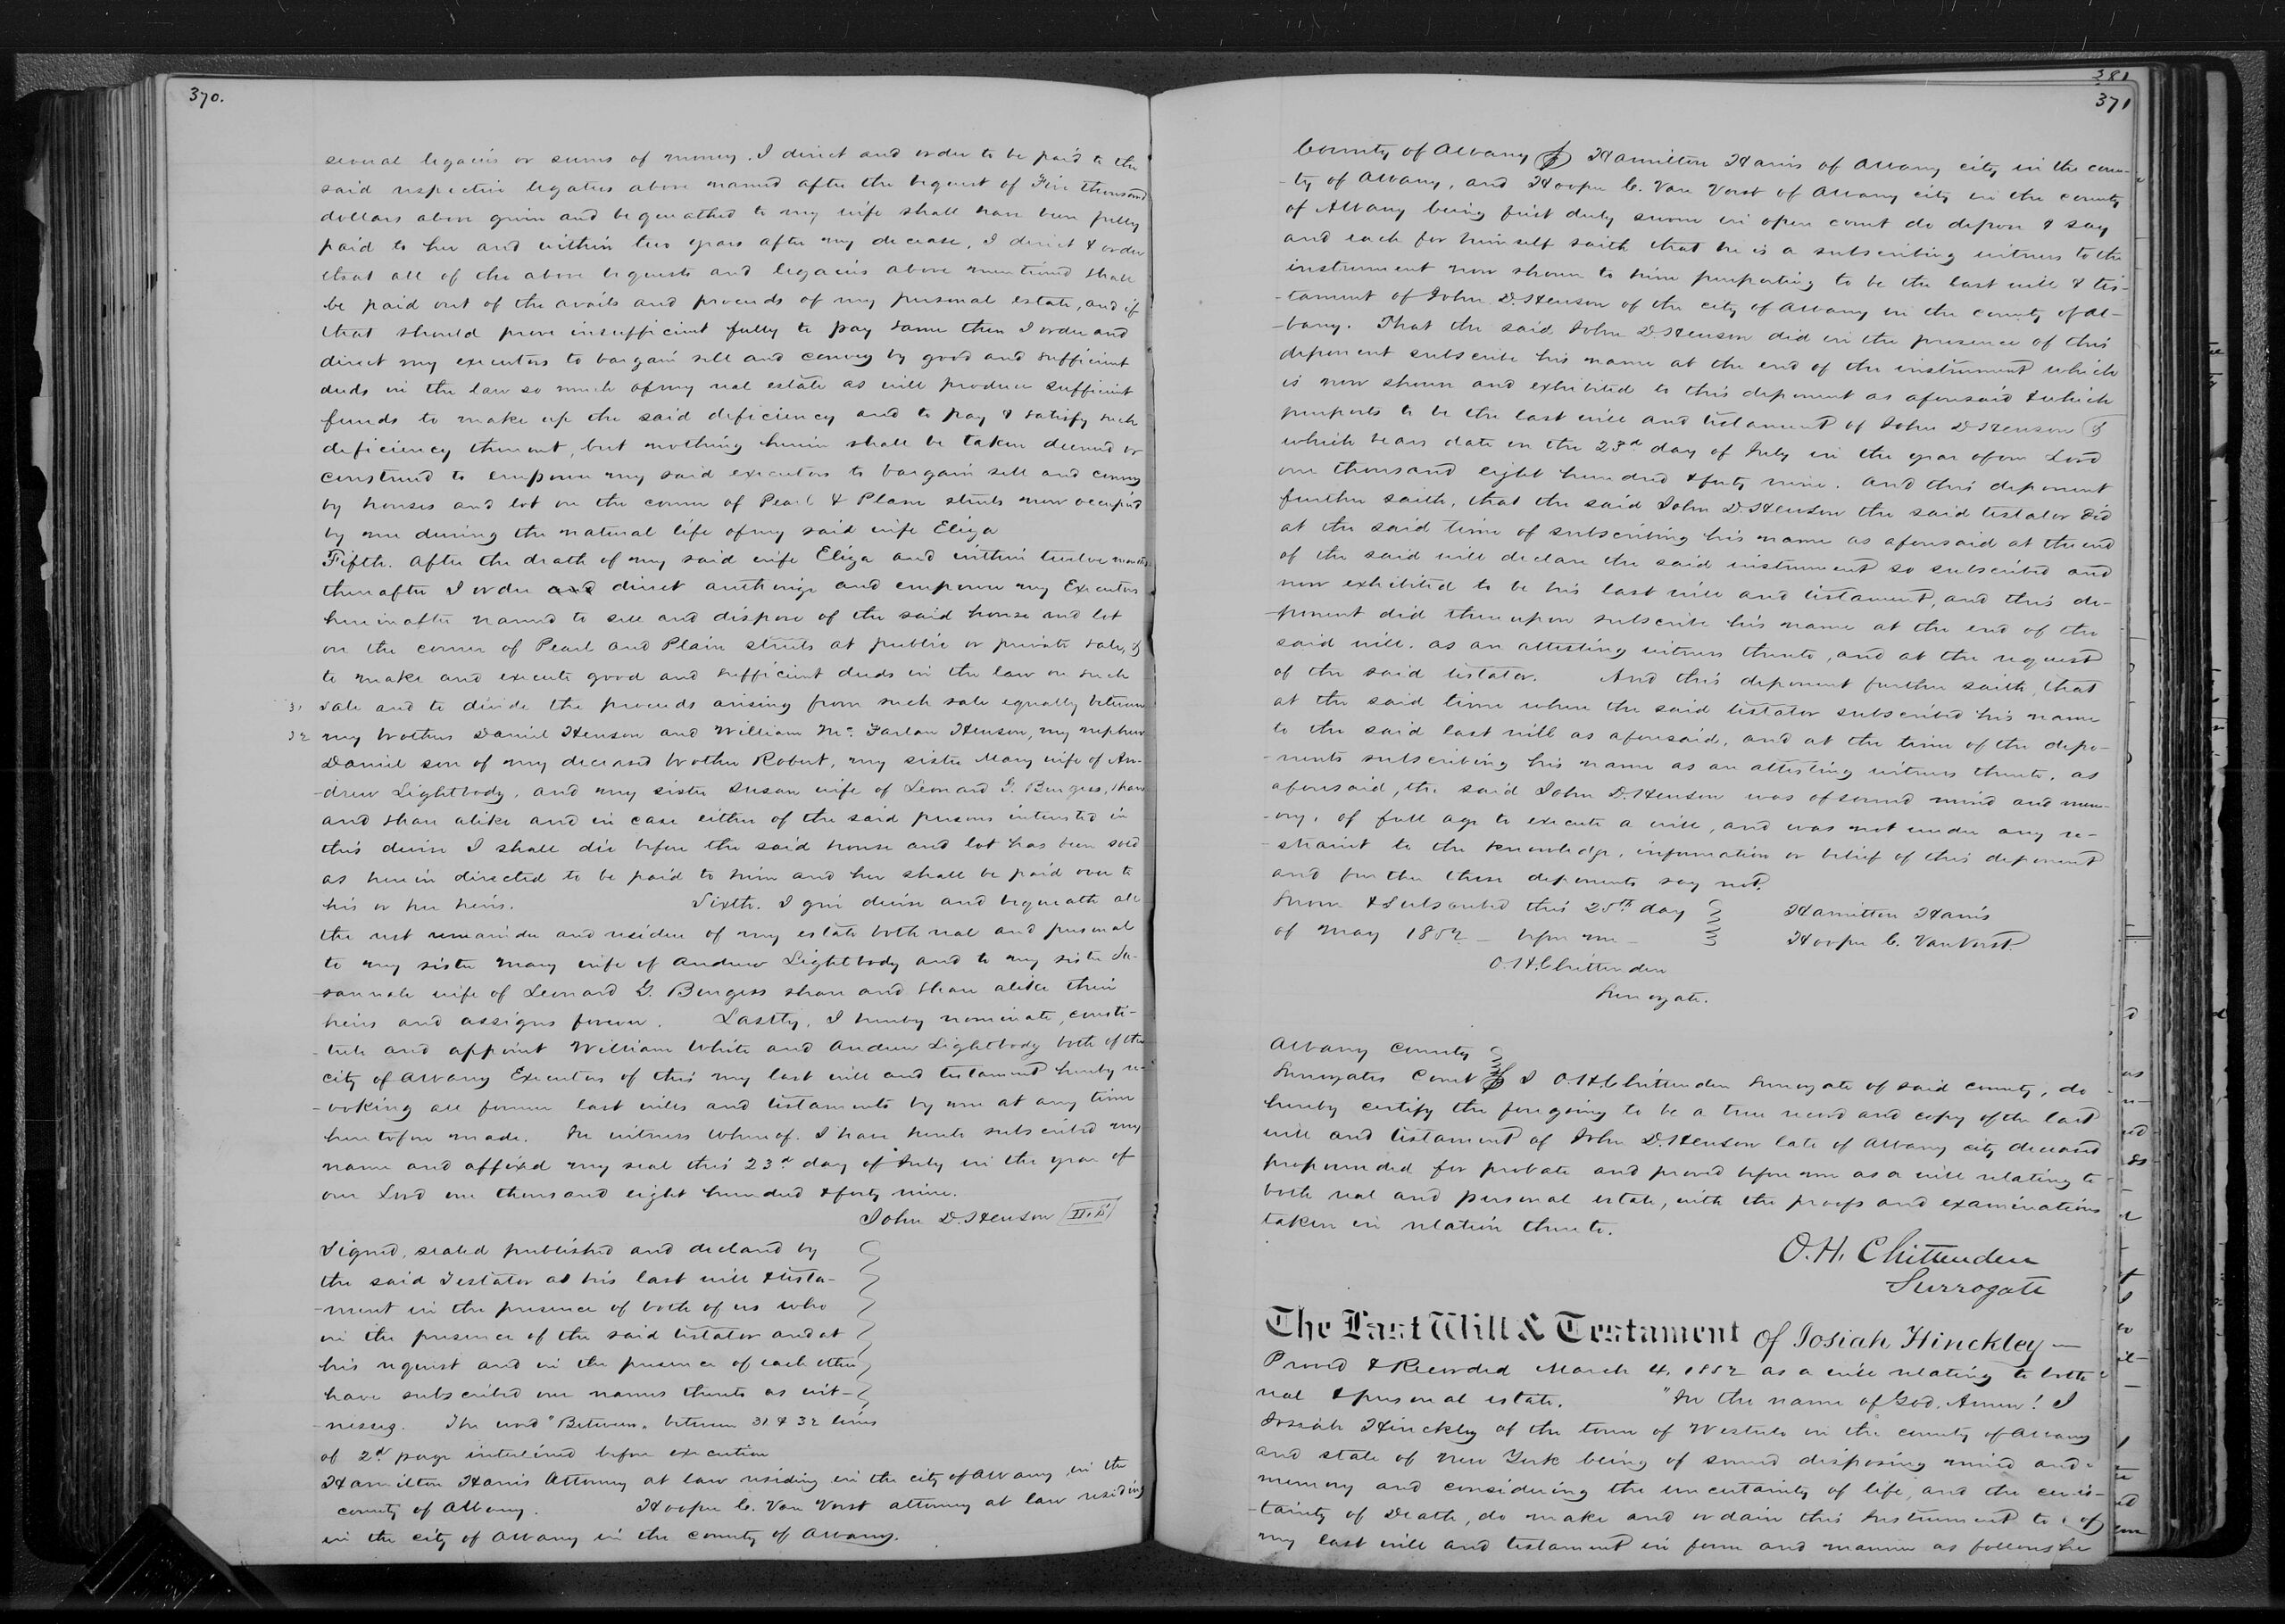 370.
several legacies or sums of money. I direct and order to be paid to the
said respective legatees above named after the bequest of Five thousand
dollars above given and bequeathed to my wife shall have been fully
paid to her and within two years after my decease, I direct & order
that all of the above bequests and legacies above mentioned shall
be paid out of the avails and proceeds of my personal estate, and if
that should prove insufficient fully to pay same then I order and
direct my executors to bargain sell and convey by good and sufficient
deeds in the law so much of my real estate as will produce sufficient
funds to make up the said deficiency and to pay & satisfy such
deficiency thereout, but nothing herein shall be taken deemed or
construed to empower my said executors to bargain sell and convey
by houses and lot on the corner of Pearl & Plain streets now occupied
by me during the natural life of my said wife Eliza
Fifth. After the death of my said wife Eliza and within twelve months
thereafter I order and direct authorize and empower my Executors
hereinafter named to sell and dispose of the said house and lot
on the corner of Pearl and Plain streets at public or private sale, &
to make and execute good and sufficient deeds in the law on such
31 sale and to divide the proceeds arising from such sale equally between
32 my brothers Daniel Henson and William Mc. Farlan Henson, my nephew
Daniel son of my deceased brother Robert, my sister Mary wife of An-
-drew Lightbody, and my sister Susan wife of Leonard G. Burgess, share
and share alike and in case either of the said persons interested in
this devise I shall die before the said house and lot has been sold
as herein directed to be paid to him and her shall be paid over to
his or her heirs. Sixth. I give devise and bequeath all
the rest remainder and residue of my estate both real and personal
to my sister Mary wife of Andrew Lightbody and to my sister Su-
-sannah wife of Leonard G. Burgess share and share alike their
heirs and assigns forever. Lastly, I hereby nominate, consti-
-tute and appoint William White and Andrew Lightbody both of the
city of Albany Executors of this my last will and testament hereby re-
-voking all former last wills and testaments by me at any time
heretofore made. In witness whereof. I have hereto subscribed my
name and affixed my seal this 23d day of July in the year of
our Lord one thousand eight hundred & forty nine.
John D. Henson
Signed, sealed published and declared by
the said Testator as his last will & testa-
-ment in the presence of both of us who
in the presence of the said testator and at
his request and in the presence of each other
have subscribed our names thereto as wit-
-nesses. The word "Between" between 31 & 32 lines
of 2d page interlined before execution
Hamilton Harris Attorney at law residing in the city of Albany in the
county of Albany. Hooper C. Van Vorst attorney at law residing
in the city of Albany in the county of Albany.
381
371
County of Albany Hamilton Harris of Albany city in the coun-
-ty of Albany, and Hooper C. Van Vorst of Albany city in the county
of Albany being first duly sworn in open court do depose & say
and each for himself saith that he is a subscribing witness to the
instrument now shown to him purporting to be the last will & tes-
-tament of John D. Henson of the city of Albany in the county of Al-
-bany. That the said John D. Henson did in the presence of this
deponent subscribe his name at the end of the instrument which
is now shown and exhibited to this deponent as aforesaid & which
purports to be the last will and testament of John D Henson &
which bears date on the 23d day of July in the year of our Lord
one thousand eight hundred & forty nine. And this deponent
further saith, that the said John D. Henson the said testator did
at the said time of subscribing his name as aforesaid at the end
of the said will declare the said instrument so subscribed and
now exhibited to be his last will and testament, and this de-
-ponent did thereupon subscribe his name at the end of the
said will. as an attesting witness thereto, and at the request
of the said testator. And this deponent further saith, that
at the said time when the said testator subscribed his name
to the said last will as aforesaid, and at the time of the depo-
-nents subscribing his name as an attesting witness thereto, as
aforesaid, the said John D. Henson was of sound mind and mem-
-ory, of full age to execute a will, and was not under any re-
-straint to the knowledge, information or belief of this deponent
and further these deponents say not.
Sworn & Subscribed this 25th day Hamilton Harris
of May 1852 - before me - Hooper C. Van Vorst.
O. H. Chittenden
Surrogate.
Albany County
Surrogates Court I O. H. Chittenden Surrogate of said county, do
hereby certify the foregoing to be a true record and copy of the last
will and testament of John D. Henson late of Albany city deceased
propounded for probate and proved before me as a will relating to
both real and personal estate, with the proofs and examinations
taken in relation thereto.
O. H. Chittenden
Surrogate
The Last Will & Testament of Josiah Hinckley -
Proved & Recorded March 4, 1852 as a will relating to both
real & personal estate. "In the name of God. Amen! I
Josiah Hinckley of the town of Westerlo in the county of Albany
and state of New York being of sound disposing mind and
memory and considering the uncertainty of life, and the cer-
-tainty of Death, do make and ordain this Instrument to of
my last will and testament in form and manner as follows